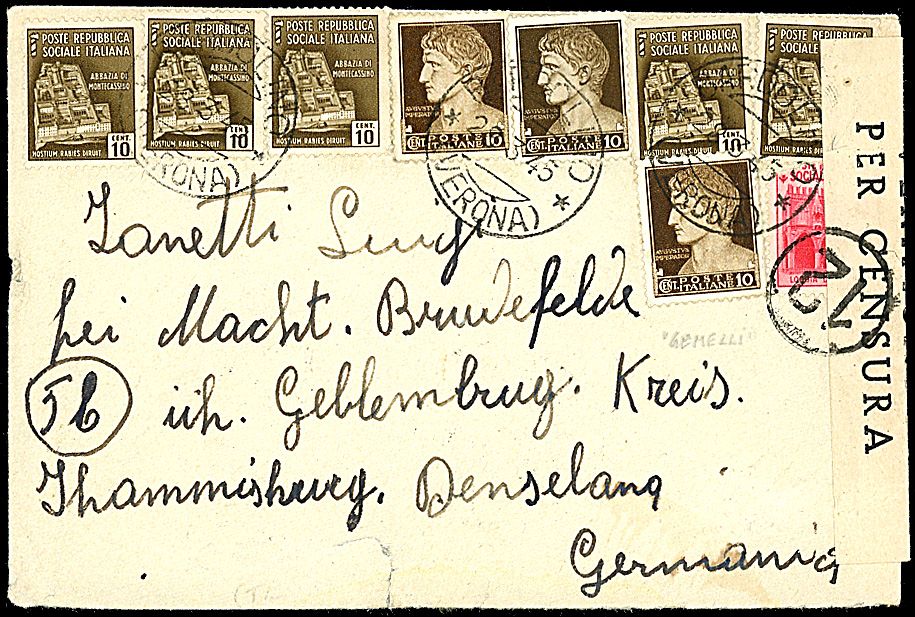 POSTE REPUBBLICA SOCIALE ITALIANA
ABBAZIA DI MONTECASSINO
CENT. 10
HOSTIUM RABIES DIRUIT
POSTE REPUBBLICA SOCIALE ITALIANA
ABBAZIA DI MONTECASSINO
CENT. 10
HOSTIUM RABIES DIRUIT
POSTE REPUBBLICA SOCIALE ITALIANA
ABBAZIA DI MONTECASSINO
CENT. 10
HOSTIUM RABIES DIRUIT
AVGVSTVS IMPERATOR
CENT. POSTE ITALIANE 10
AVGVSTVS IMPERATOR
CENT. POSTE ITALIANE 10
POSTE REPUBBLICA SOCIALE ITALIANA
ABBAZIA DI MONTECASSINO
CENT. 10
HOSTIUM RABIES DIRUIT
POSTE REPUBBLICA SOCIALE
HOSTIUM RABIES DIRUIT
AVGVSTVS IMPERATOR
CENT. POSTE ITALIANE 10
SOCIAL
(VERONA)
(VERONA)
(VERONA)
PER CENSURA
Zanetti Luigi
bei Macht. Brudefelde
5b üh. Geblembrug. Kreis.
Denselang
Germania
"GEMELLI"